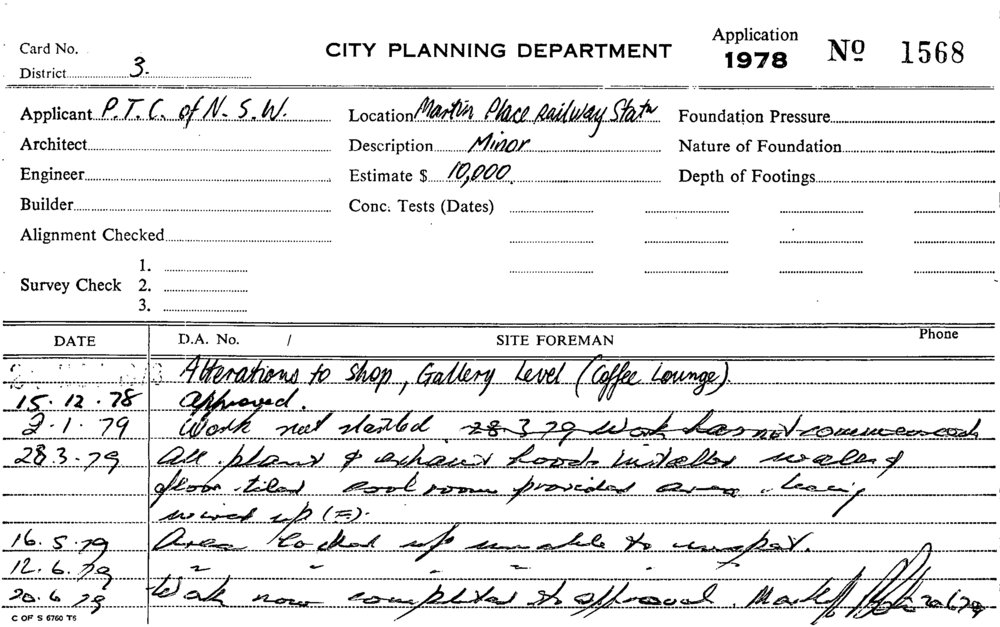 Card No.
CITY PLANNING DEPARTMENT
Application
1978
Nº 1568
District 3.
Applicant P.T.C. of N.S.W.
Location Martin Place Railway Statn
Foundation Pressure
Architect
Description Minor
Nature of Foundation
Engineer
Estimate $ 10,000.
Depth of Footings
Builder
Conc. Tests (Dates)
Alignment Checked
1.
Survey Check 2.
3.
DATE D.A. No. / SITE FOREMAN Phone
Alterations to shop, Gallery Level (Coffee Lounge).
15.12.78 Approved.
2.1.79 Work not started. 28.3.79 Work has not commenced
28.3.79 All plant & exhaust hoods installed walls &
floor tiled cool room provided area being
wired up (=).
16.5.79 Area locked up unable to inspect.
12.6.79 " " " " "
20.6.79 Work now completed to approval. 20/6/79
C OF S 6760 T5